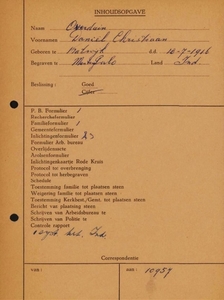 INHOUDSOPGAVE
Naam : Overduin
Voornamen : Daniël Christiaan
Geboren te : Katwijk d.d. 10-7-1916
Begraven te : Land : Ind.
Beslissing : Goed
F. B. Formulier 1
Rechercheformulier
Familieformulier 1
Gemeenteformulier
Inlichtingenformulier
Formulier Arb. bureau
Overlijdensacte
Aceforenformulier
Inlichtingenkaartje Rode Kruis
Protocol to overbrenging
Protocol tot herbegraven
Schedule
Toestemming familie tot plaatsen steen
Weigering familie tot plaatsen steen
Toestemming Kerkbest./Gem. tot plaatsen steen
Bericht van plaatsing steen
Schrijven van Arbeidsbureau te
Schrijven van Politie te
Controle rapport
Correspondentie
VAK : MAP : 10957